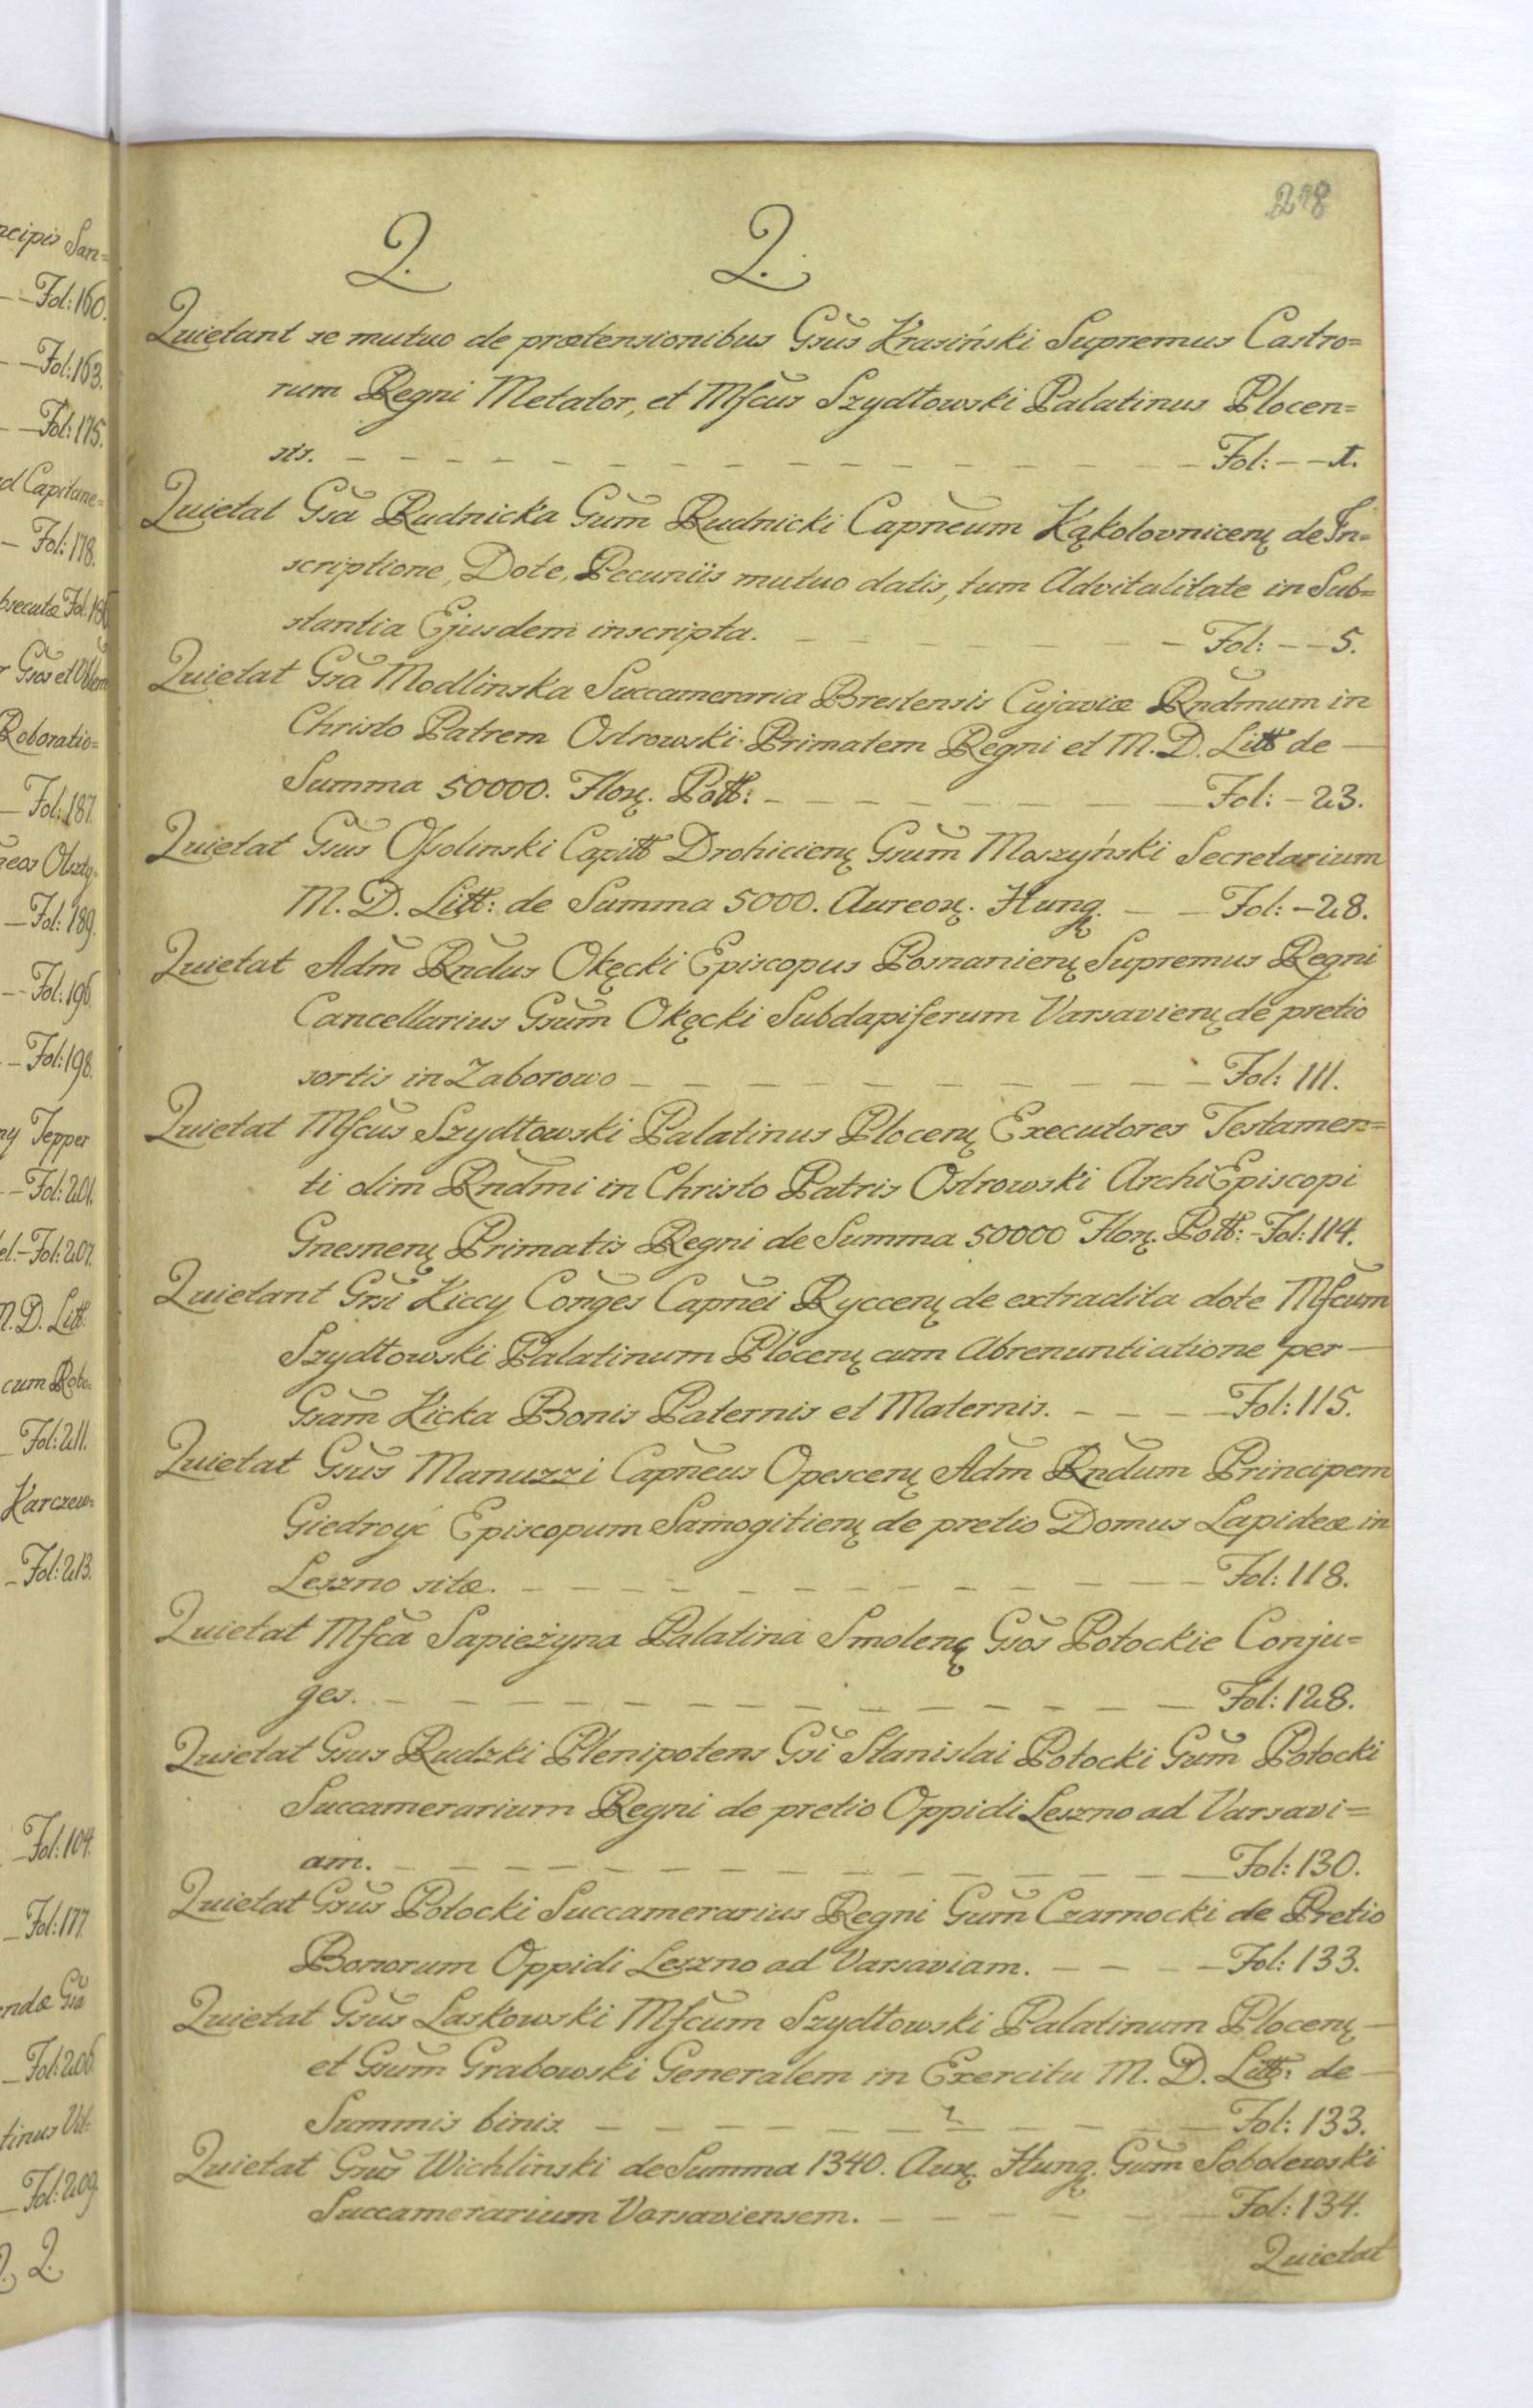 218
Q. Q.
Quietant se mutuo de prætensionibus Gsus Krasiński Supremus Castro=
rum Regni Metator, et Mfcus Szydłowski Palatinus Plocen=
sis. Fol: 1.
Quietat Gsa Rudnicka Gsum Rudnicki Capneum Kąkolovnicen: de In=
scriptione, Dote, Pecuniis mutuo datis, tum Advitalitate in Sub=
stantia Ejusdem inscripta. Fol: 5.
Quietat Gsa Modlinska Succameraria Brestensis Cujaviæ Rndmum in
Christo Patrem Ostrowski Primatem Regni et M. D. Litt de
Summa 50000. Flor: Poll: Fol: 23.
Quietat Gsus Ossolinski Capitt Drohicien: Gsum Moszyński Secretarium
M. D. Litt: de Summa 5000. Aureor: Hung. Fol: 28.
Quietat Adm Rndus Okęcki Episcopus Posnanien: Supremus Regni
Cancellarius Gsum Okęcki Subdapiferum Varsavien: de pretio
sortis in Zaborowo Fol: 111.
Quietat Mfcus Szydłowski Palatinus Plocen: Executores Testamen=
ti olim Rndmi in Christo Patris Ostrowski ArchiEpiscopi
Gnesnen: Primatis Regni de Summa 50000 Flor: Poll: Fol: 114.
Quietant Gsi Kiccy Conges Capnei Ryccen: de extradita dote Mfcum
Szydłowski Palatinum Plocen: cum Abrenuntiatione per
Gsam Kicka Bonis Paternis et Maternis. Fol: 115.
Quietat Gsus Manuzzi Capneus Opescen: Adm Rndum Principem
Giedroyć Episcopum Samogitien: de pretio Domus Lapideæ in
Leszno sitæ. Fol: 118.
Quietat Mfca Sapieżyna Palatina Smolen: Gsos Potockie Conju=
ges. Fol: 128.
Quietat Gsus Rudzki Plenipotens Gsi Stanislai Potocki Gsum Potocki
Succamerarium Regni de pretio Oppidi Leszno ad Varsavi=
am. Fol: 130.
Quietat Gsus Potocki Succamerarius Regni Gsum Czarnocki de Pretio
Bonorum Oppidi Leszno ad Varsaviam. Fol: 133.
Quietat Gsus Laskowski Mfcum Szydłowski Palatinum Plocen:
et Gsum Grabowski Generalem in Exercitu M. D. Litt: de
Summis binis. Fol: 133.
Quietat Gsus Wichlinski de Summa 1340. Aur: Hung. Gsum Sobolewski
Succamerarium Varsaviensem. Fol: 134.
Quietat